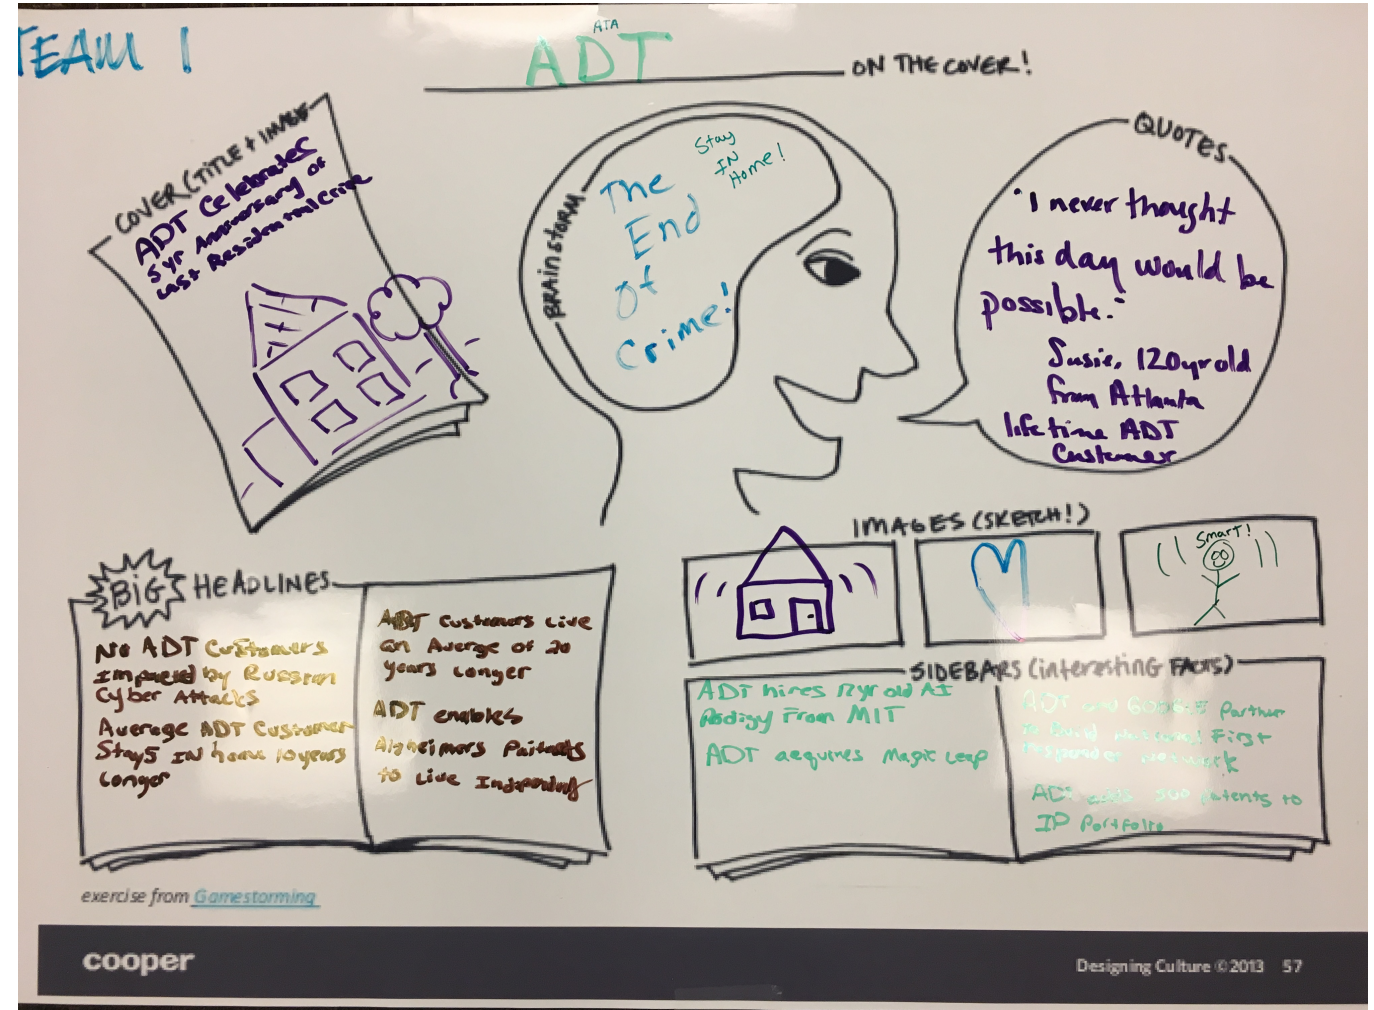 TEAM 1
ATA
ADT
ON THE COVER!
COVER (TITLE + IMAGE
ADT Celebrates
5yr Anniversary of
Last Residential Crime
BRAINSTORM
Stay
IN
Home!
The
End
Of
Crime!
QUOTES
"I never thought
this day would be
possible."
Susie, 120yr old
from Atlanta
lifetime ADT
Customer
IMAGES (SKETCH!)
Smart!
BIG HEADLINES
No ADT Customers
Impacted by Russian
Cyber Attacks
Average ADT Customer
Stays IN home 10 years
Longer
ADT Customers Live
an Average of 20
years Longer
ADT enables
Alzheimers
to Live
SIDEBARS (interesting FACTS)
ADT hires 12yr old AI
Prodigy From MIT
ADT aequires Magic Leap
ADT and GOOGLE Partner
to Build National First
responder network
ADT adds 500 patents to
IP Portfolio
exercise from Gamestorming
cooper
Designing Culture ©2013 57